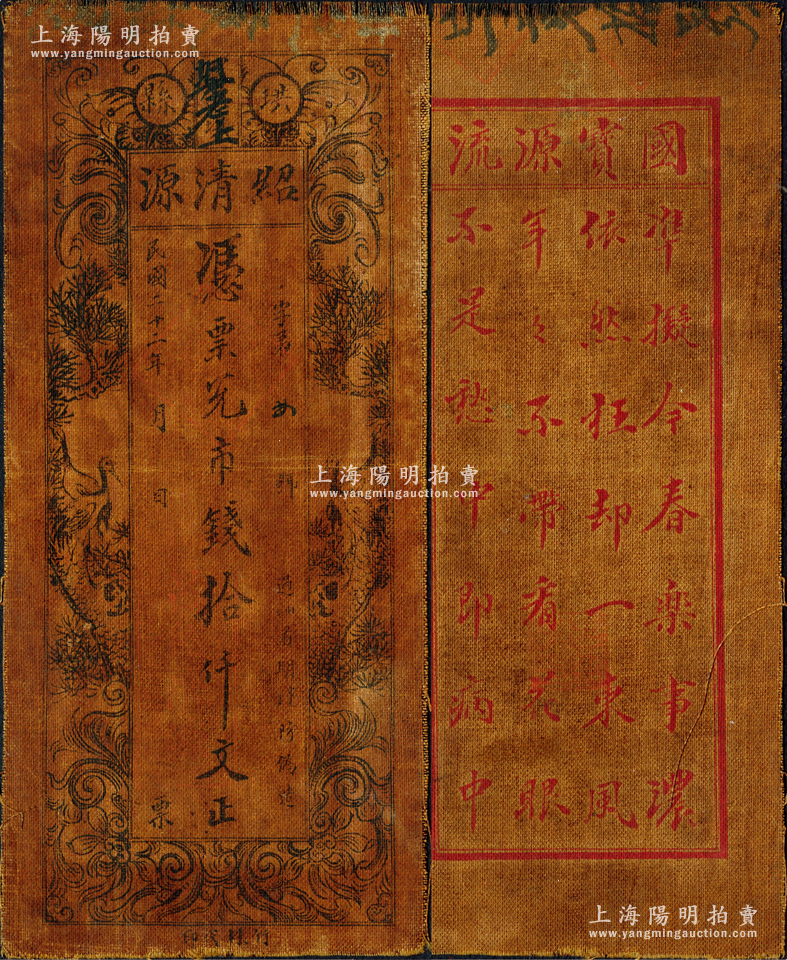 上海陽明拍賣
www.yangmingauction.com
上海陽明拍賣
www.yangmingauction.com
上海陽明拍賣
www.yangmingauction.com
上海陽明拍賣
www.yangmingauction.com
珙縣
紹清源
字第
憑票兌市錢拾仟文正
民國二十二年 月 日 票
國寶源流
準擬今春楽事濃
依然枉却一東風
年々不帶看花眼
不是愁中即病中